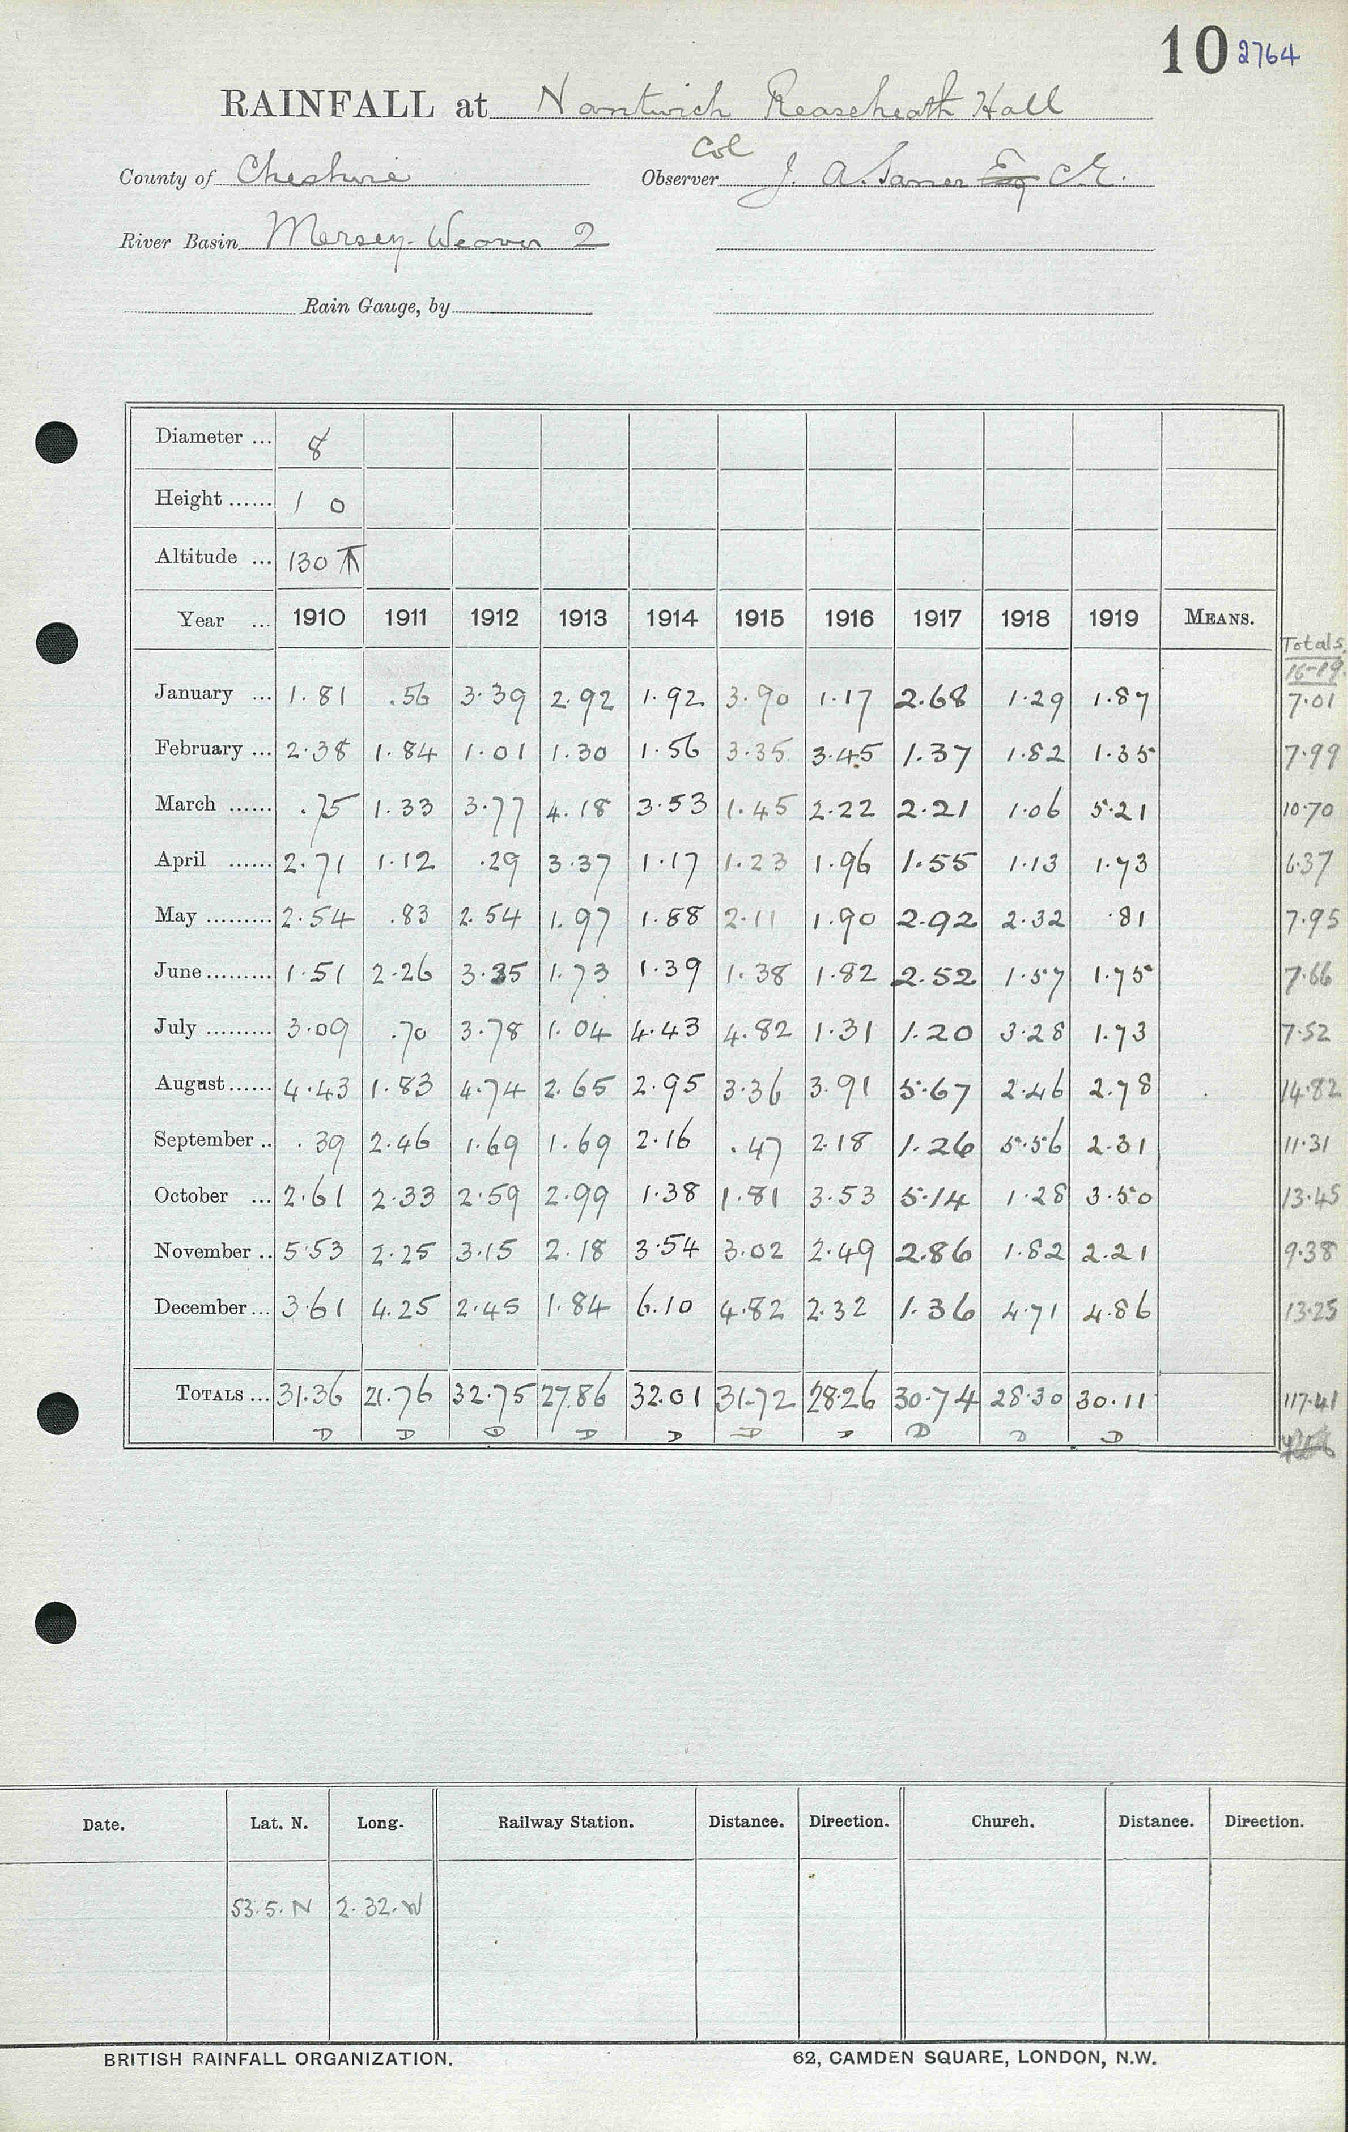 10 2764
RAINFALL at Nantwich Reaseheath Hall
Col
County of Cheshire Observer J. A. Saner Esq C.E.
River Basin Mersey-Weaver 2
Rain Gauge, by
Diameter ... 8
Height ...... 1 0
Altitude ... 130
Year ... 1910 1911 1912 1913 1914 1915 1916 1917 1918 1919 MEANS.
Totals
16-19
January ... 1.81 .56 3.39 2.92 1.92 3.90 1.17 2.68 1.29 1.87 7.01
February ... 2.38 1.84 1.01 1.30 1.56 3.35 3.45 1.37 1.82 1.35 7.99
March ...... .75 1.33 3.77 4.18 3.53 1.45 2.22 2.21 1.06 5.21 10.70
April ...... 2.71 1.12 .29 3.37 1.17 1.23 1.96 1.55 1.13 1.73 6.37
May ......... 2.54 .83 2.54 1.97 1.88 2.11 1.90 2.92 2.32 .81 7.95
June ......... 1.51 2.26 3.35 1.73 1.39 1.38 1.82 2.52 1.57 1.75 7.66
July ......... 3.09 .70 3.78 1.04 4.43 4.82 1.31 1.20 3.28 1.73 7.52
August ...... 4.43 1.83 4.74 2.65 2.95 3.36 3.91 5.67 2.46 2.78 14.82
September .. .39 2.46 1.69 1.69 2.16 .47 2.18 1.26 5.56 2.31 11.31
October ... 2.61 2.33 2.59 2.99 1.38 1.81 3.53 5.14 1.28 3.50 13.45
November .. 5.53 2.25 3.15 2.18 3.54 3.02 2.49 2.86 1.82 2.21 9.38
December ... 3.61 4.25 2.45 1.84 6.10 4.82 2.32 1.36 4.71 4.86 13.25
TOTALS ... 31.36 21.76 32.75 27.86 32.01 31.72 28.26 30.74 28.30 30.11 117.41
D D D D D D D D D D
Date. Lat. N. Long. Railway Station. Distance. Direction. Church. Distance. Direction.
53.5.N 2.32.W
BRITISH RAINFALL ORGANIZATION. 62, CAMDEN SQUARE, LONDON, N.W.